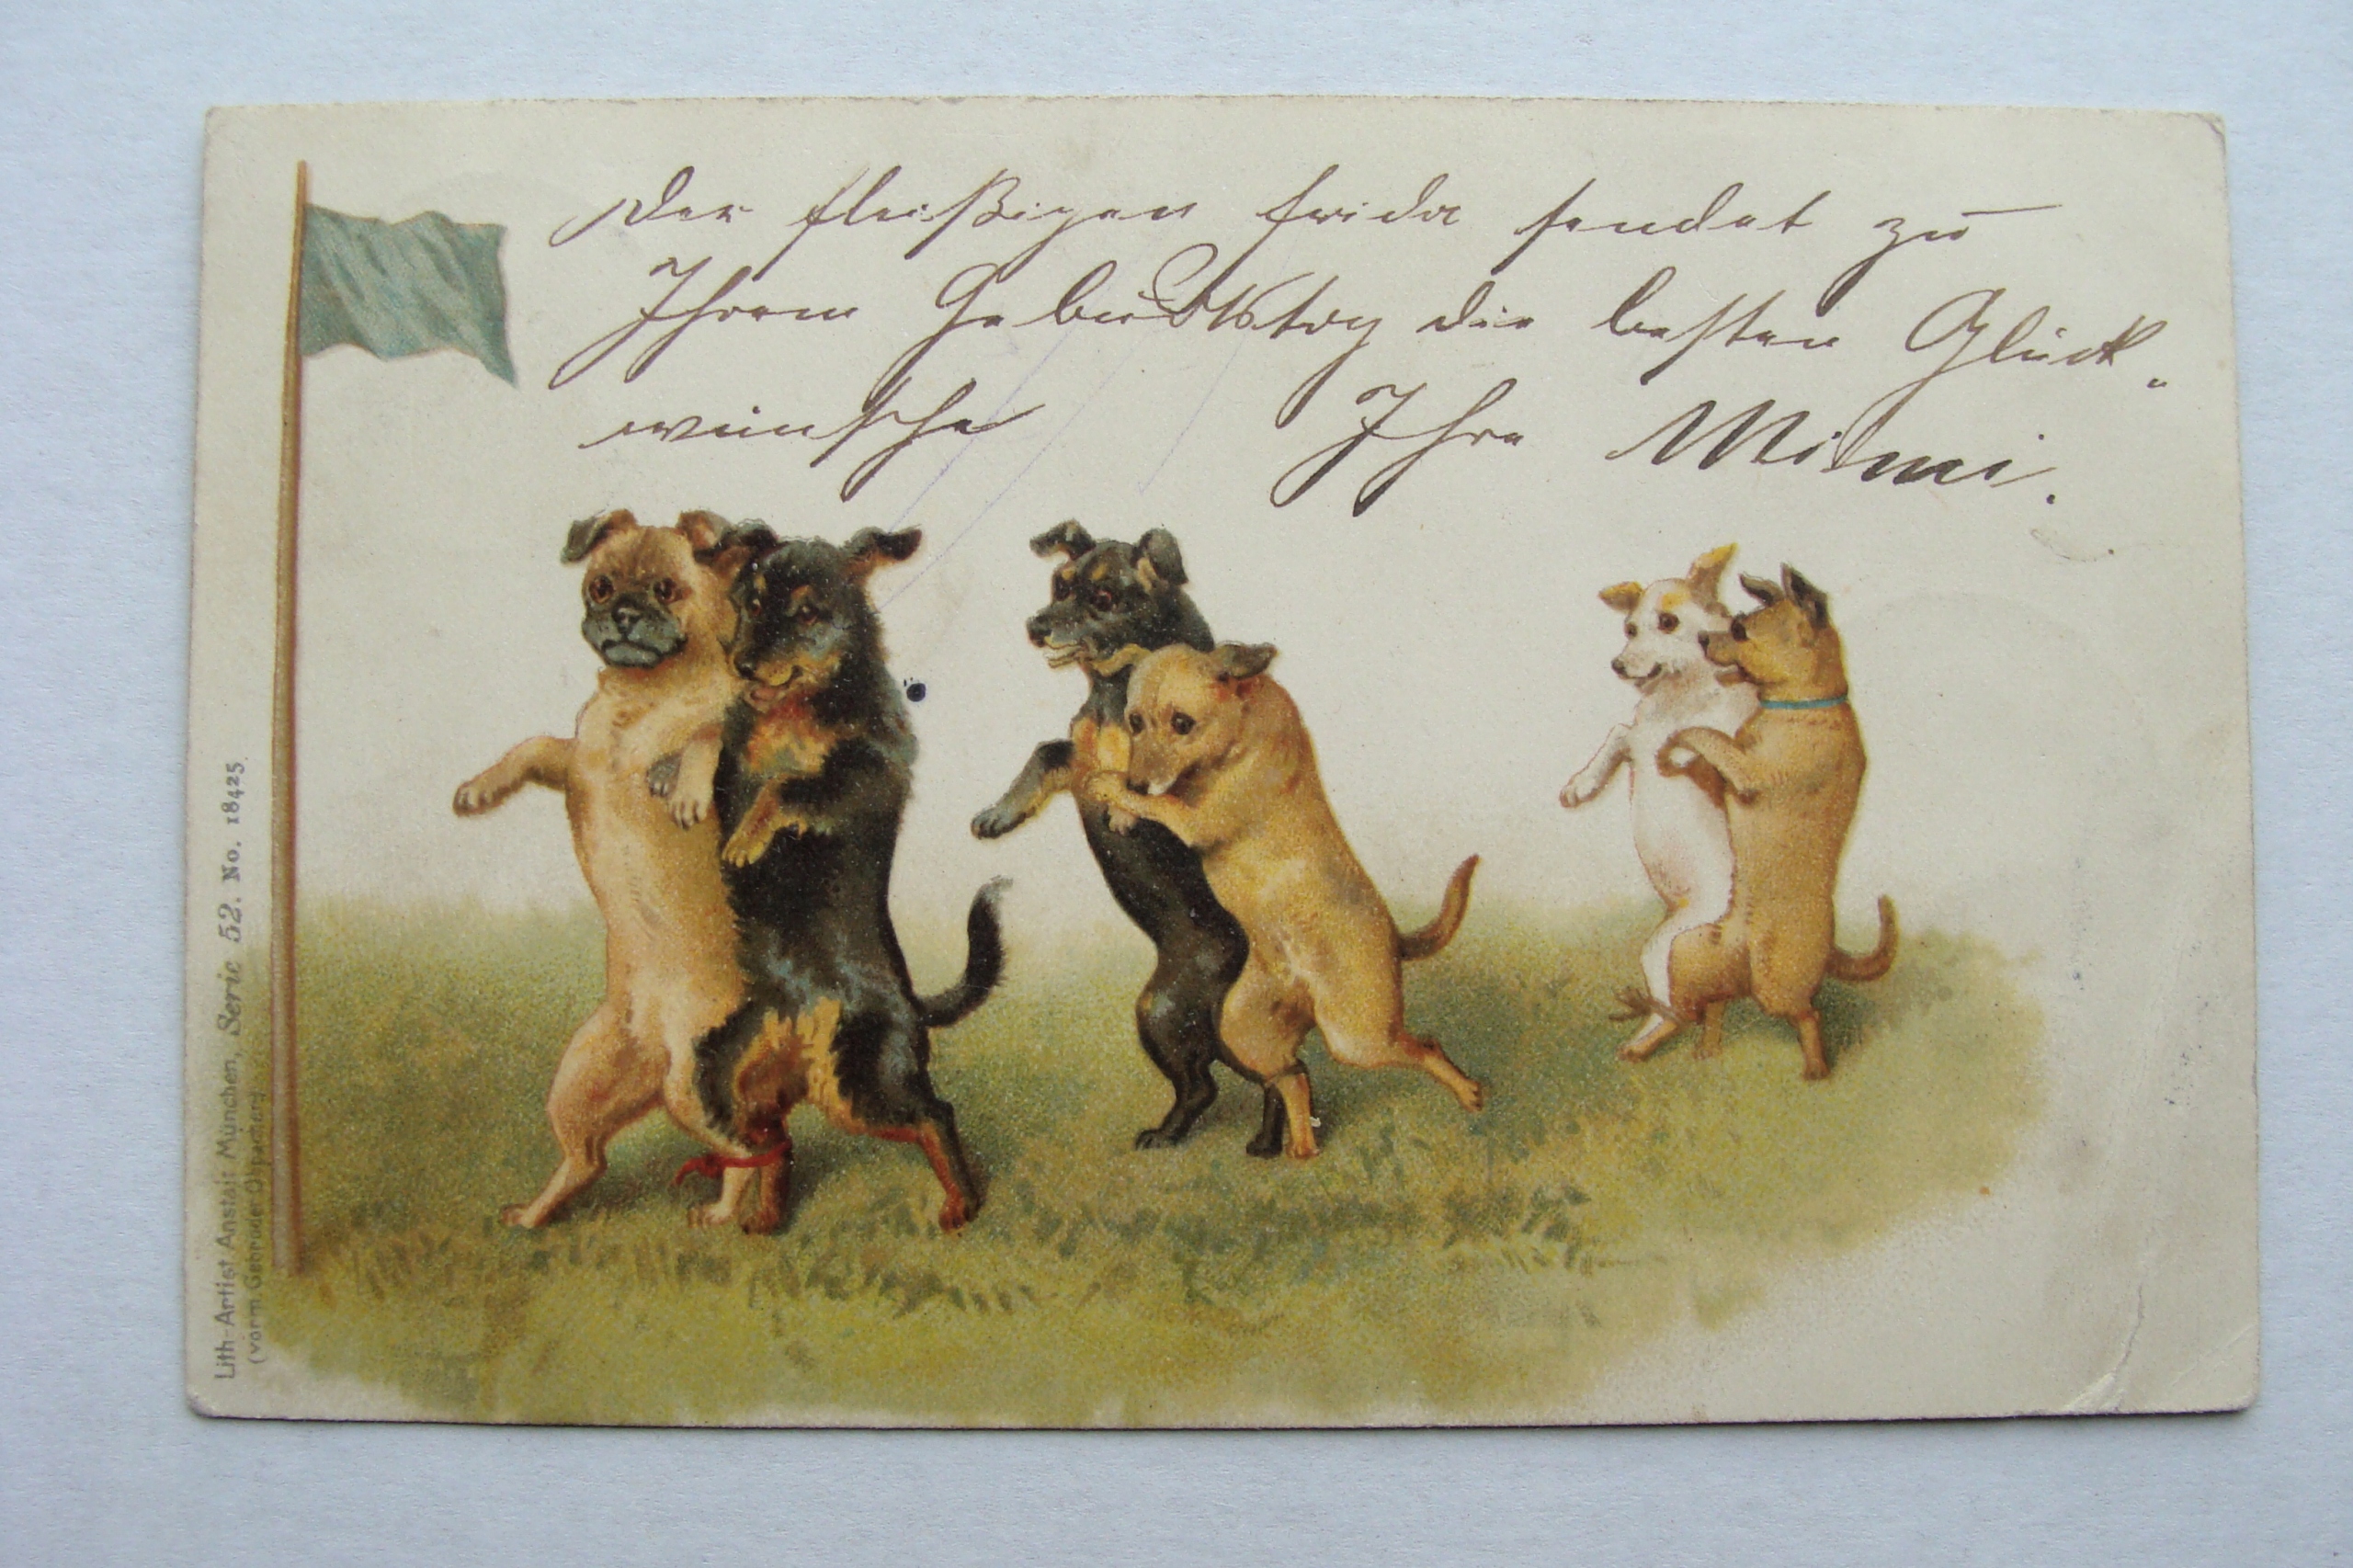 Der fleißigen Frida sendet zu
Ihrem Geburtstag die besten Glück-
wünsche Ihre Mimi.
Lith-Artist Anstalt München, Serie 52. No. 18425.
(vorm Gebrüder Obpacher)